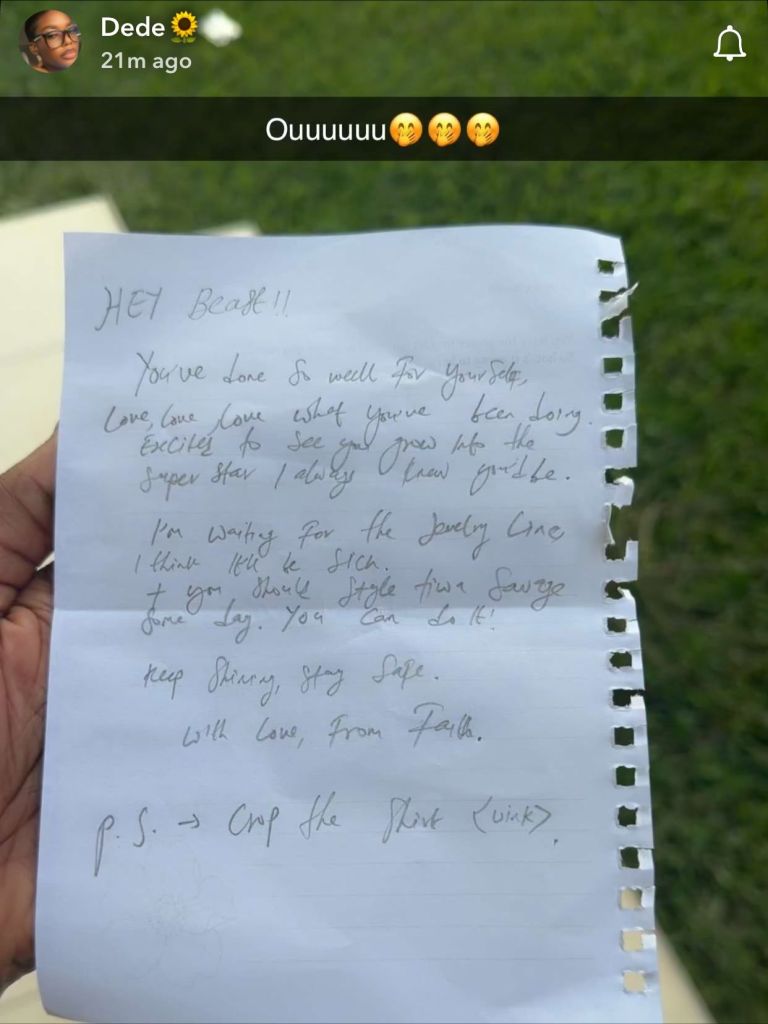 Dede🌻
21m ago
Ouuuuuu🤭🤭🤭
HEY Beast!!
You've done so well For Yourself,
Love, Love, Love what you've been doing.
Excited to see you grow into the
Super Star I always knew you'd be.
I'm waiting For the Jewelry Line,
I think It'll be Sick.
+ you should Style tiwa Savage
Some day. You can do it!
Keep Shining, Stay Safe.
With Love, From Faith.
P.S. → Crop the Shirt <wink>.